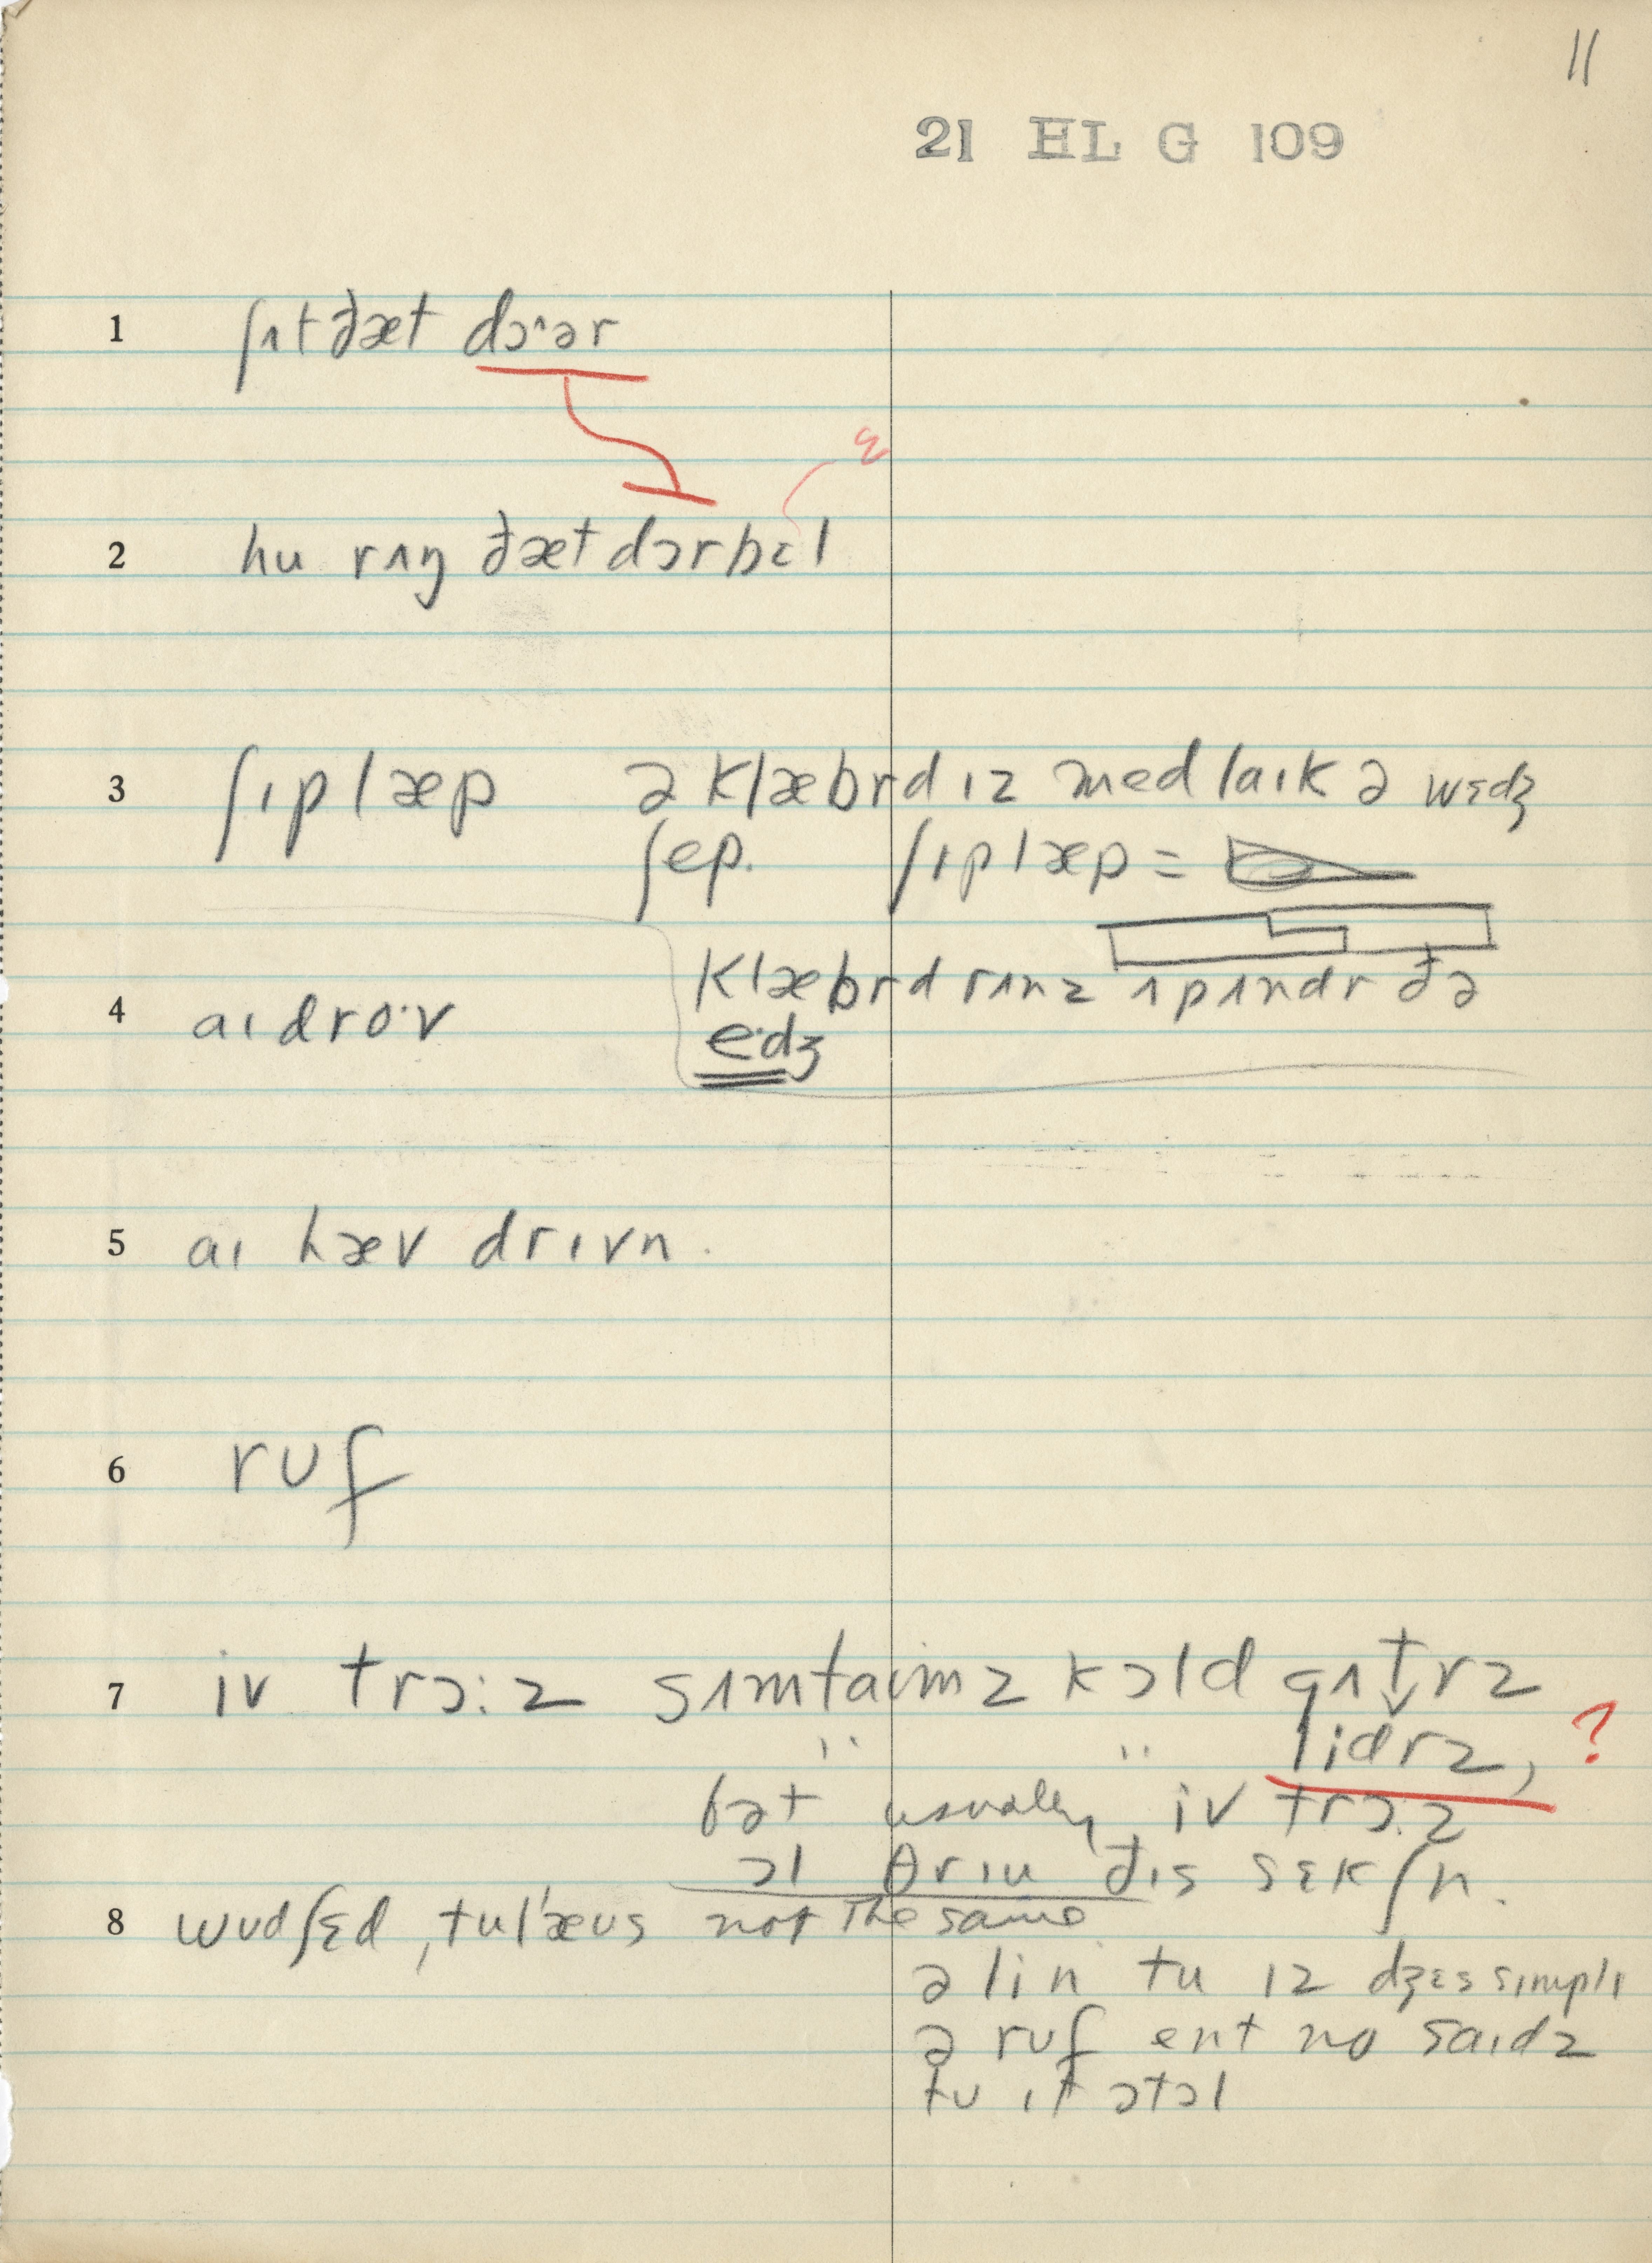 11
21 HL G 109
1 ʃʌt ðæt dɔ˄ər
ɛ
2 hu rʌŋ ðæt dɔrbɛl
3 ʃıplæp ə klæbrd ız med laık ə wɛdʒ
ʃep. ʃıplæp =
klæbrd rʌnz ʌpʌndr ðə
4 aı dro·v
e·dʒ
5 aı hæv drıvn.
6 rʊf
7 iv trɔ:z sʌmtaımz kɔld gʌt̬rz
" " lidrz, ?
bət usually iv trɔ.z
ɔl θrıu ðıs sɛkʃn.
8 wʊdʃɛd, tulˈæʊs not the same
ə lin tu ız dʒɛs sımplı
ə rʊf ent no saıdz
tʊ ıt ətɔl